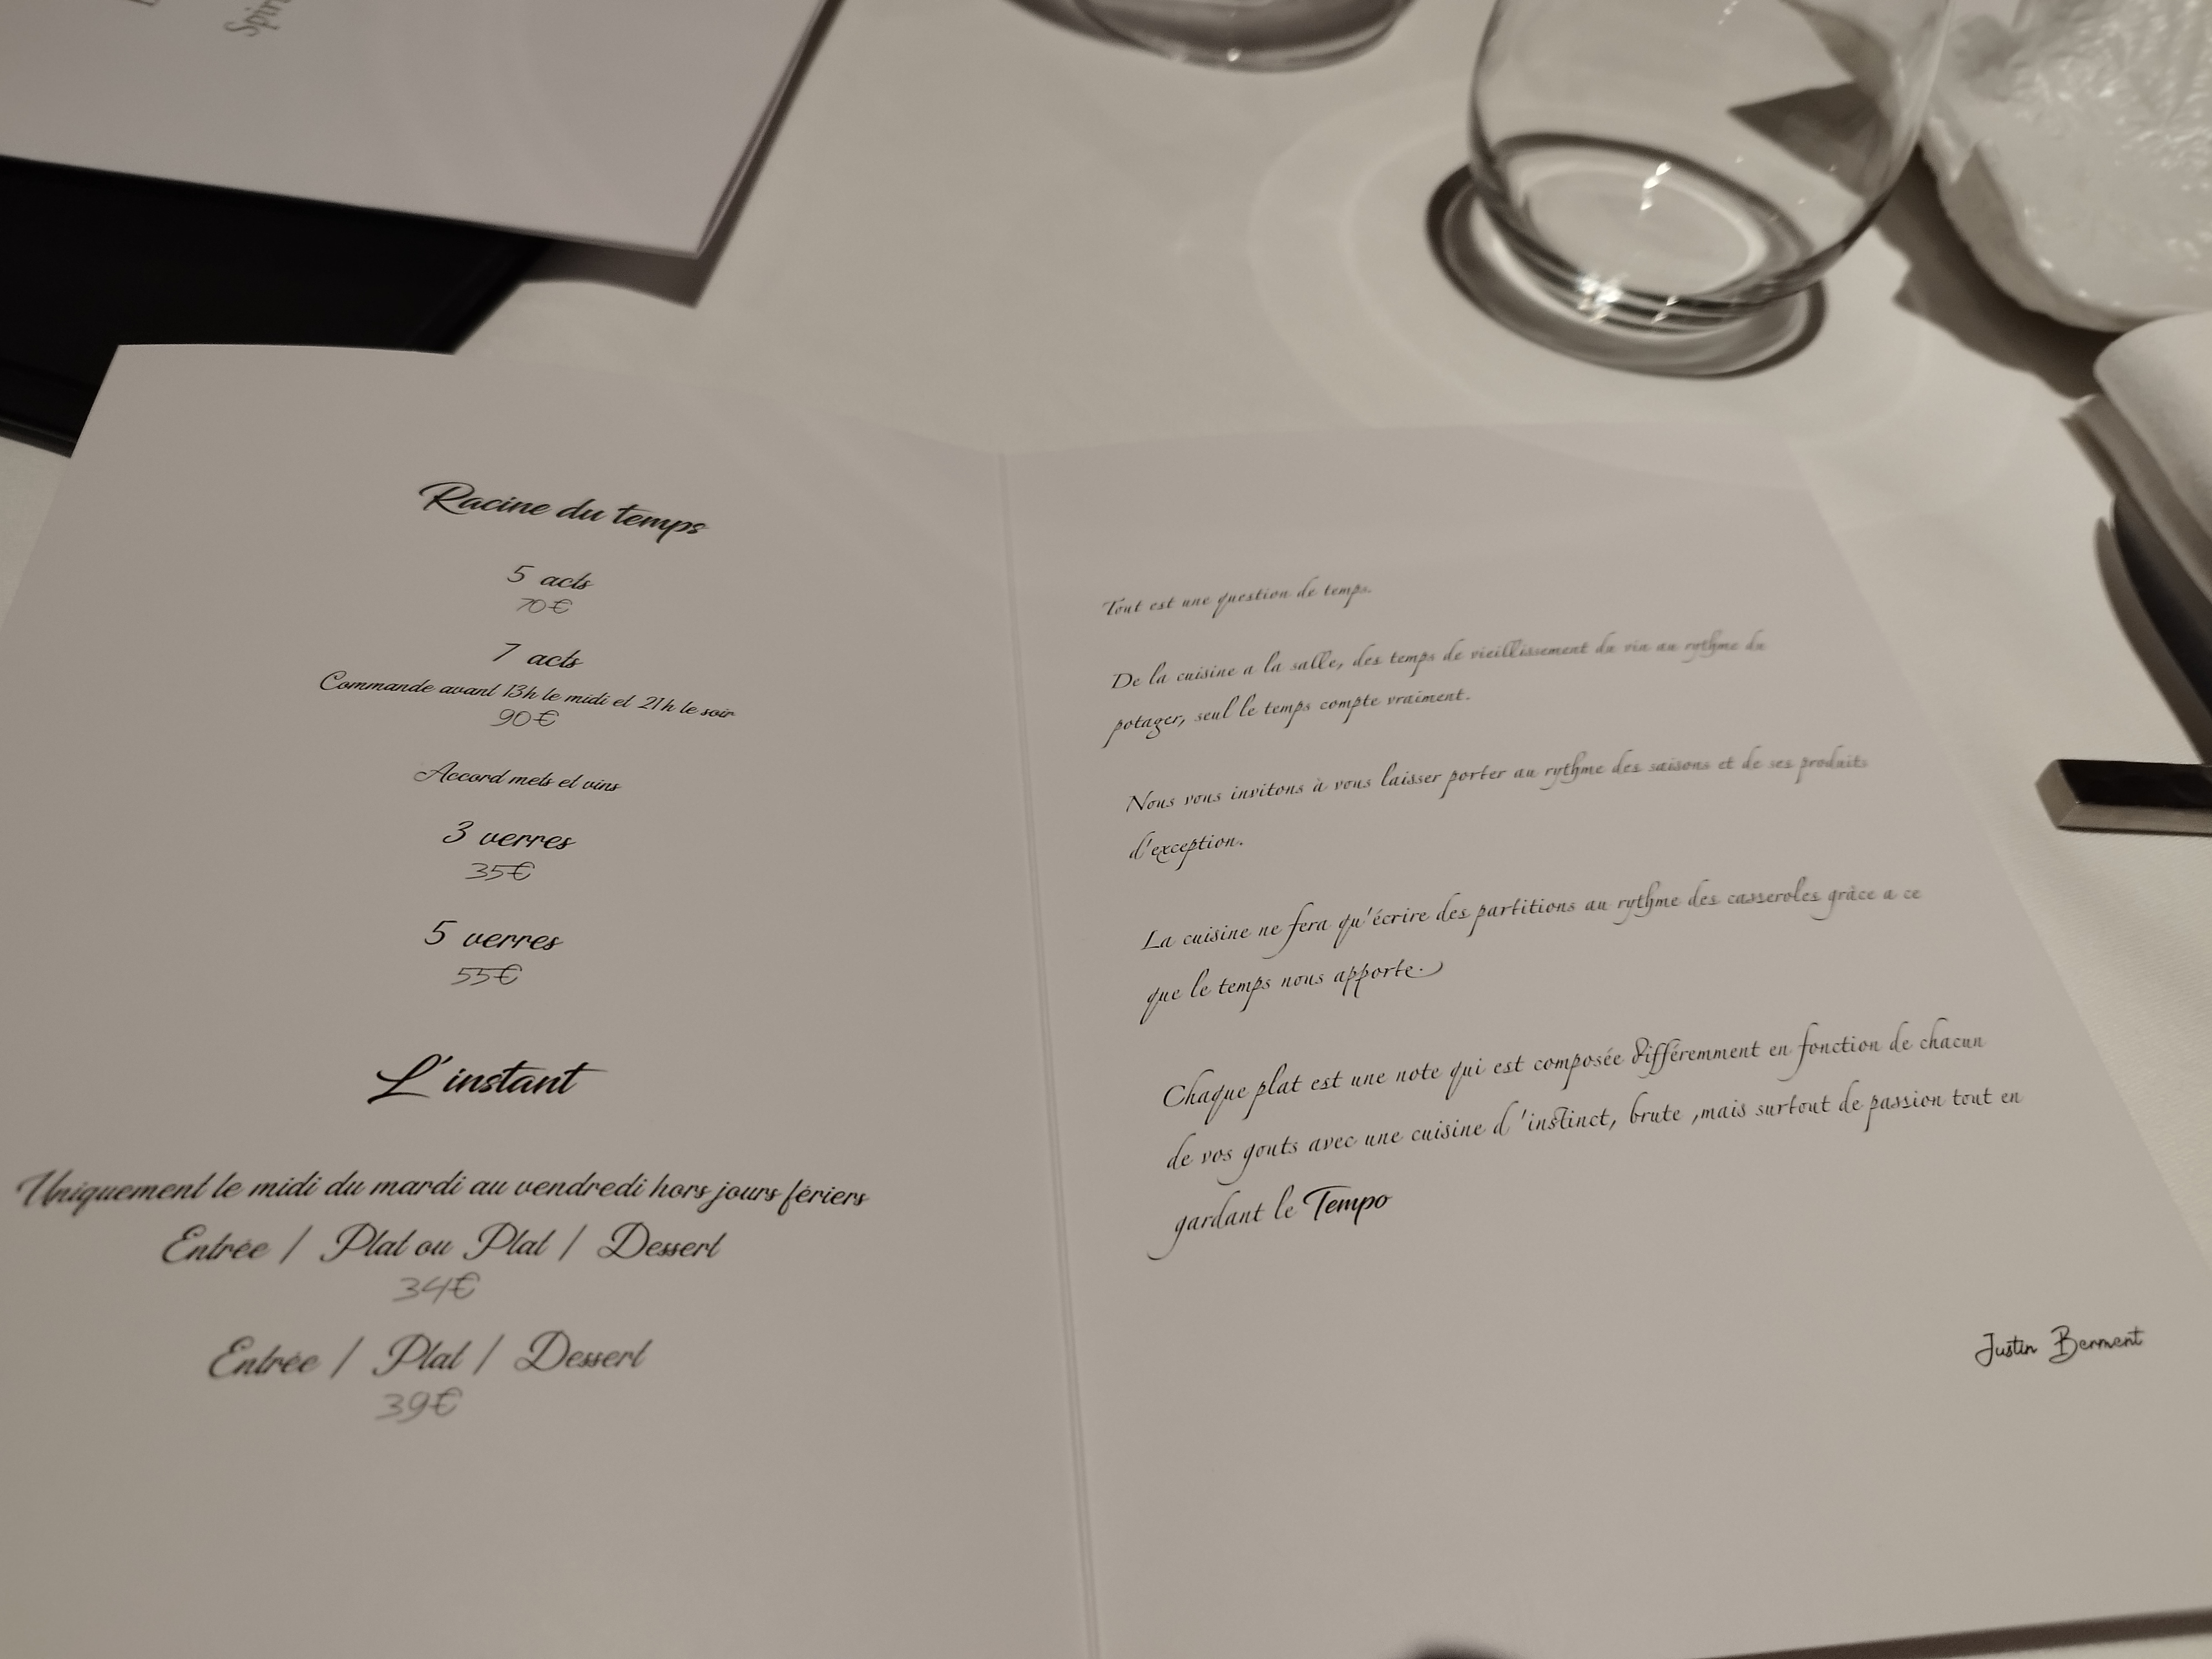 Racine du temps
5 acts
70€
7 acts
Commande avant 13h le midi et 21h le soir
90€
Accord mets et vins
3 verres
35€
5 verres
55€
L'instant
Uniquement le midi du mardi au vendredi hors jours fériers
Entrée / Plat ou Plat / Dessert
34€
Entrée / Plat / Dessert
39€
Tout est une question de temps.
De la cuisine a la salle, des temps de vieillissement du vin au rythme du
potager, seul le temps compte vraiment.
Nous vous invitons à vous laisser porter au rythme des saisons et de ses produits
d'exception.
La cuisine ne fera qu'écrire des partitions au rythme des casseroles grâce a ce
que le temps nous apporte.
Chaque plat est une note qui est composée différemment en fonction de chacun
de vos gouts avec une cuisine d 'instinct, brute ,mais surtout de passion tout en
gardant le Tempo
Justin Berment